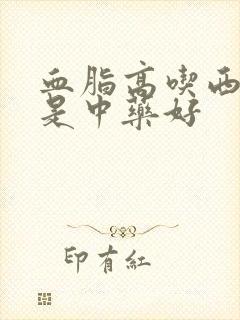 血脂高喫西
是中藥好
印有紅